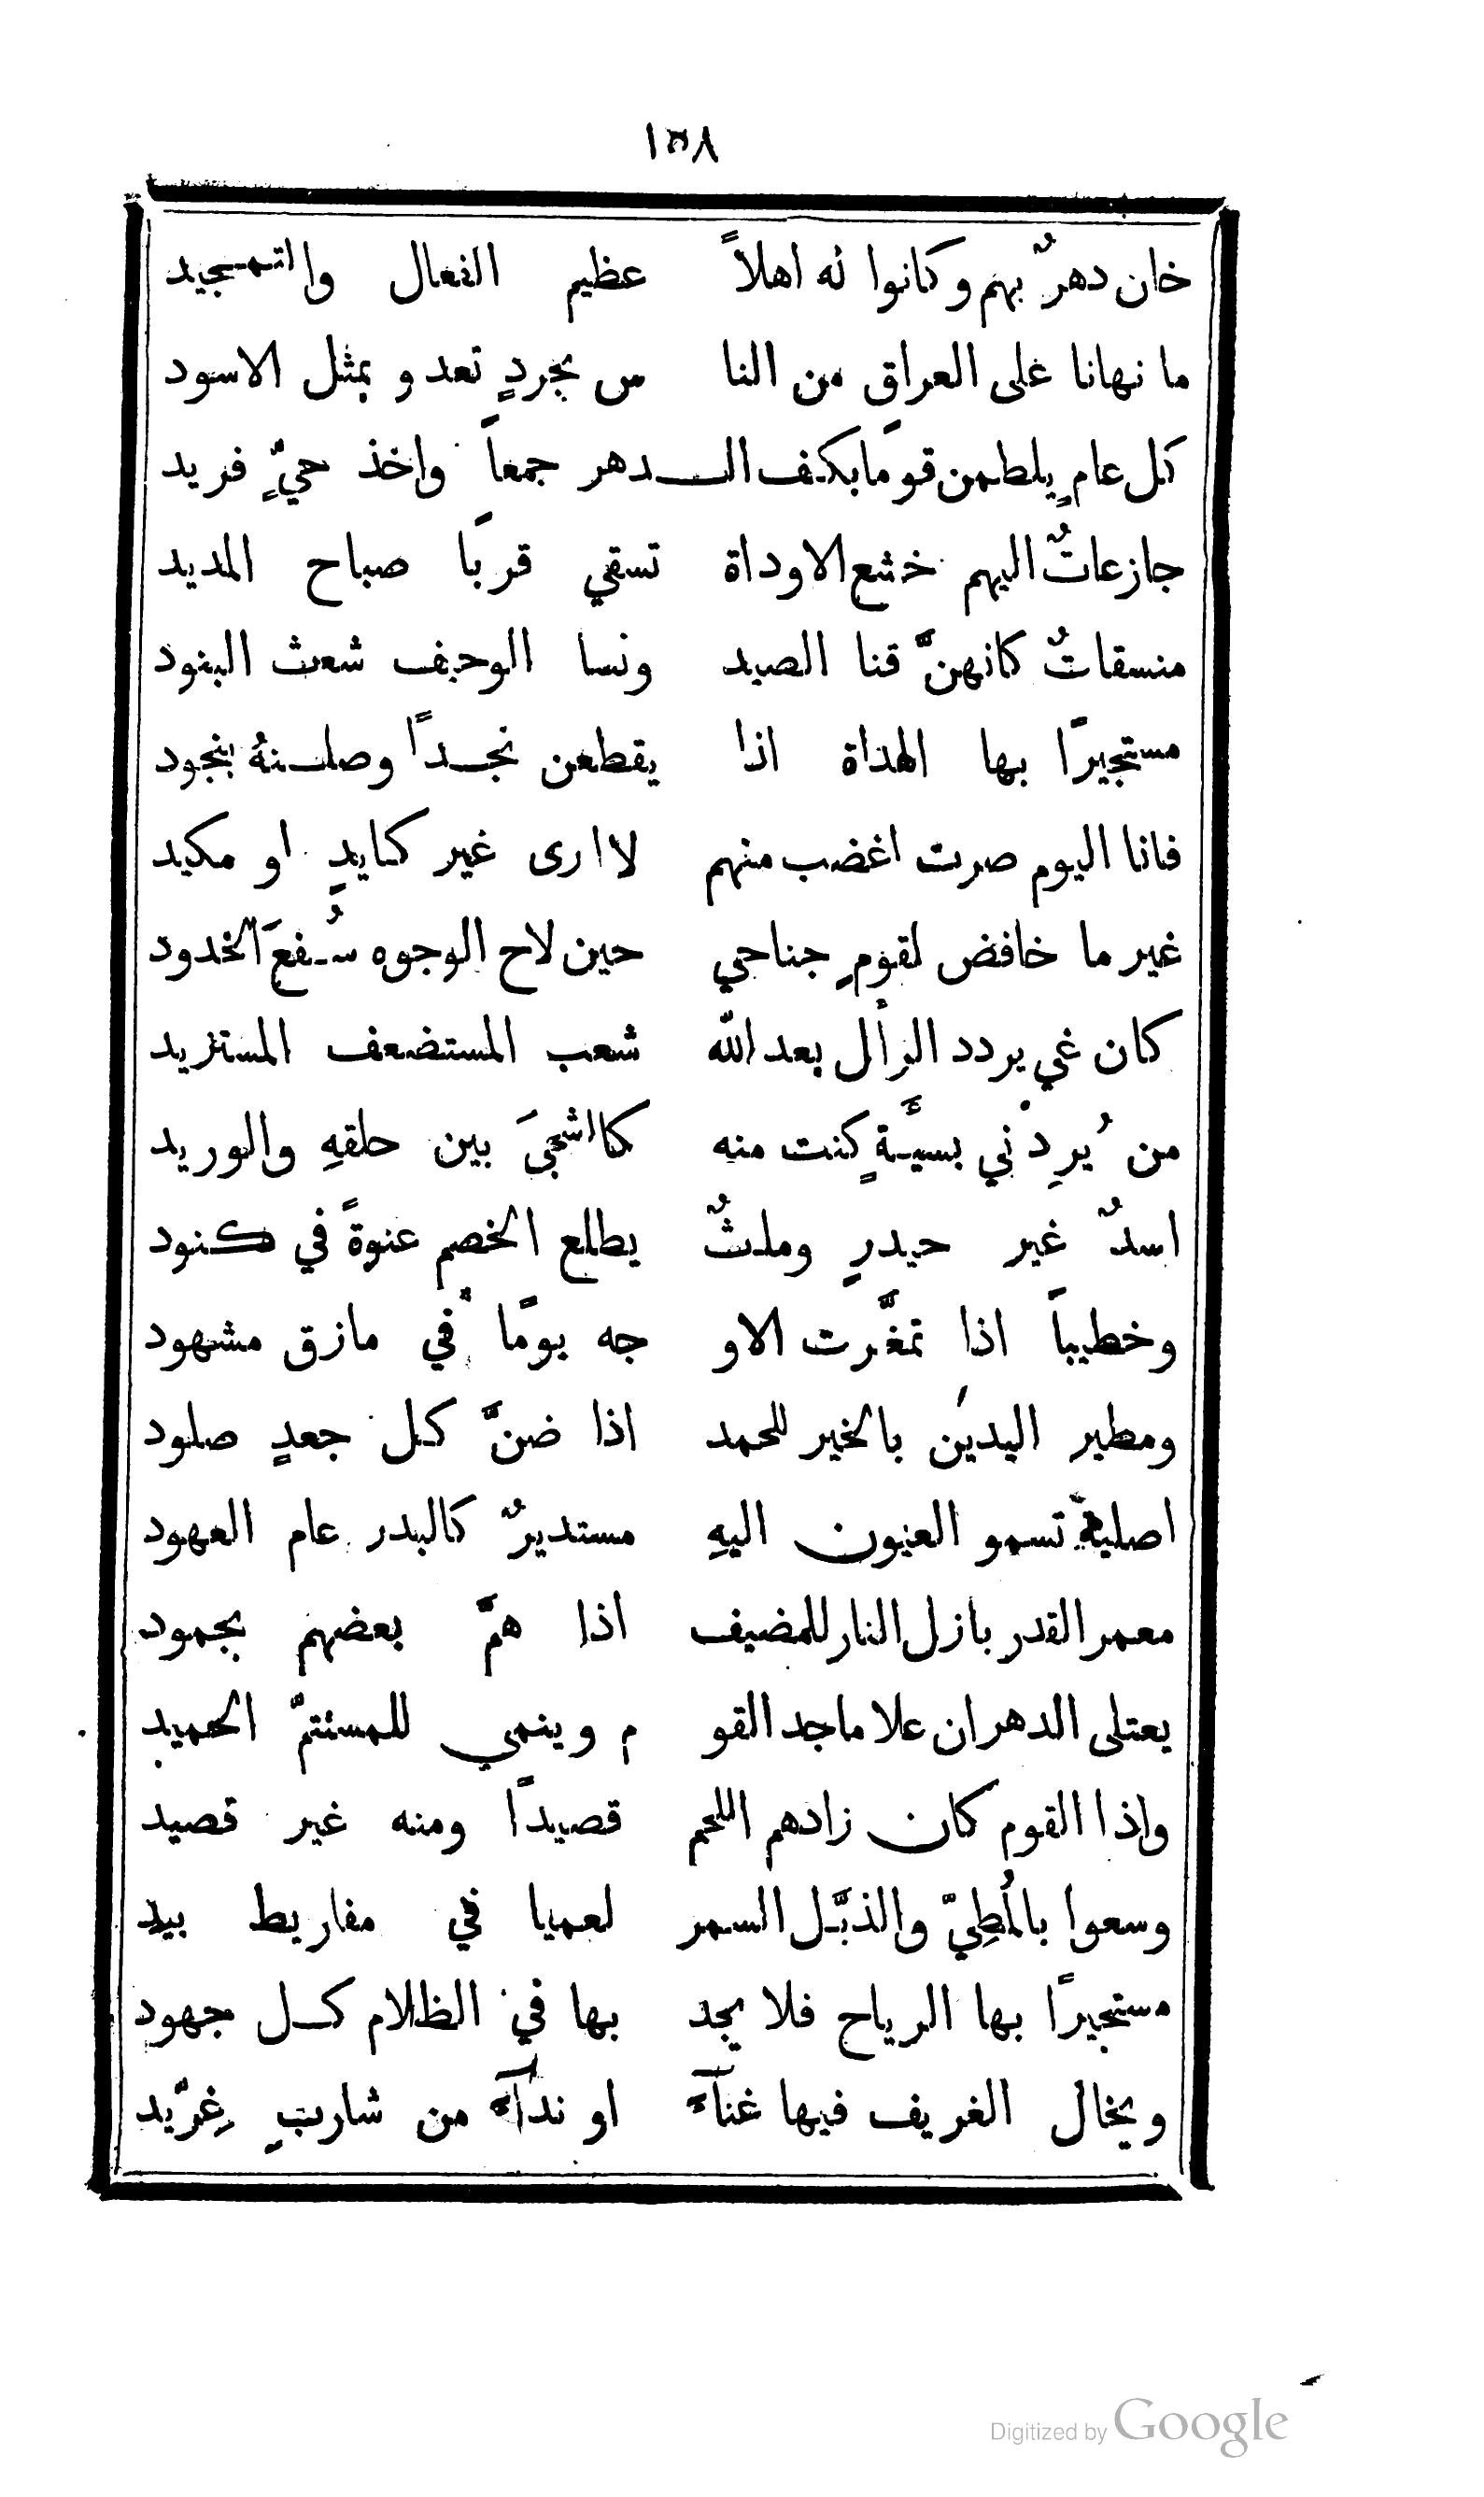 ١٥٨
خان دهرٌ بهم وكانوا له اهلاً عظيم الفعال والتمجيد
ما نهانا على العراقِ من النا س بجردٍ تعدو بمثل الاسود
كل عامٍ يلطمن قومًا بكف الـدهر جمعاً واخذ حيٍّ فريد
جازعاتٌ اليهم خشع الاوداة تسقي قربًا صباح المديد
منسقاتٌ كانهنَّ قنا الصيد ونسا الوجيف شعث البنود
مستجيرًا بها الهداة اذا يقطعن نجـدًا وصلـنهُ بنجود
فانا اليوم صرت اغضب منهم لا ارى غير كايدٍ او مكيد
غير ما خافض لقومٍ جناحي حين لاح الوجوه سُـفعَ الخدود
كان غي يردد الرأل بعد الله شعب المستضعف المستزيد
من يُرِدْني بسيئَةٍ كنت منه كالشجىَ بين حلقهِ والوريد
اسدٌ غير حيدرٍ وملثٌ يطلع الخصم عنوةً في كنود
وخطيباً اذا تمغَّرت الاو جه يومًا في مازق مشهود
ومطير اليدين بالخير للحمد اذا ضنَّ كل جعدٍ صلود
اصليةٌ تسمو العيون اليهِ مستديرٌ كالبدر عام العهود
معمر القدر بازل النار للمضيف اذا همَّ بعضهم بجمود
يعتلى الدهر ان علا ماجد القو م وينمي للمستتمّ الحميد
واذا القوم كان زادهم اللحم قصيدًا ومنه غير قصيد
وسعوا بالمُطِيّ والذبَّـل السمر لعميا في مفاريط بيد
مستجيرًا بها الرياح فلا يجد بها في الظلام كـل جهود
ويخال الغريف فيها غنآء او ندآء من شاربٍ غِرّيد
Digitized by Google